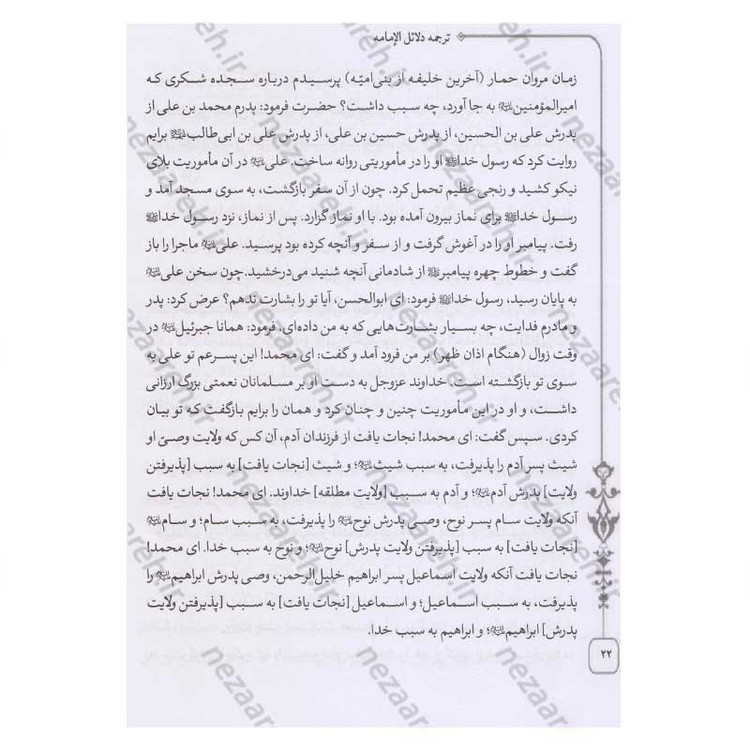 ترجمه دلائل الإمامه
زمان مروان حمار (آخرین خلیفه از بنی‌امیّه) پرسیدم درباره سجده شکری که
امیرالمؤمنین‌ﷺ به جا آورد، چه سبب داشت؟ حضرت فرمود: پدرم محمد بن علی از
پدرش علی بن الحسین، از پدرش حسین بن علی، از پدرش علی بن ابی‌طالب برایم
روایت کرد که رسول خداﷺ او را در مأموریتی روانه ساخت. علی در آن مأموریت بلای
نیکو کشید و رنجی عظیم تحمل کرد. چون از آن سفر بازگشت، به سوی مسجد آمد و
رسول خداﷺ برای نماز بیرون آمده بود. با او نماز گزارد. پس از نماز، نزد رسول خداﷺ
رفت. پیامبر او را در آغوش گرفت و از سفر و آنچه کرده بود پرسید. علی ماجرا را باز
گفت و خطوط چهره پیامبرﷺ از شادمانی آنچه شنید می‌درخشید.چون سخن علی
به پایان رسید، رسول خداﷺ فرمود: ای ابوالحسن، آیا تو را بشارت ندهم؟ عرض کرد: پدر
و مادرم فدایت، چه بسیار بشارت‌هایی که به من داده‌ای. فرمود: همانا جبرئیل در
وقت زوال (هنگام اذان ظهر) بر من فرود آمد و گفت: ای محمد! این پسرعم تو علی به
سوی تو بازگشته است. خداوند عزوجل به دست او بر مسلمانان نعمتی بزرگ ارزانی
داشت، و او در این مأموریت چنین و چنان کرد و همان را برایم بازگفت که تو بیان
کردی. سپس گفت: ای محمد! نجات یافت از فرزندان آدم، آن کس که ولایت وصیّ او
شیث پسر آدم را پذیرفت، به سبب شیث؛ و شیث [نجات یافت] به سبب [پذیرفتن
ولایت] پدرش آدم؛ و آدم به سبب [ولایت مطلقه] خداوند. ای محمد! نجات یافت
آنکه ولایت سام پسر نوح، وصی پدرش نوح را پذیرفت، به سبب سام؛ و سام
[نجات یافت] به سبب [پذیرفتن ولایت پدرش] نوح؛ و نوح به سبب خدا. ای محمد!
نجات یافت آنکه ولایت اسماعیل پسر ابراهیم خلیل‌الرحمن، وصی پدرش ابراهیم را
پذیرفت، به سبب اسماعیل؛ و اسماعیل [نجات یافت] به سبب [پذیرفتن ولایت
پدرش] ابراهیم؛ و ابراهیم به سبب خدا.
۲۲
nezaareh.ir